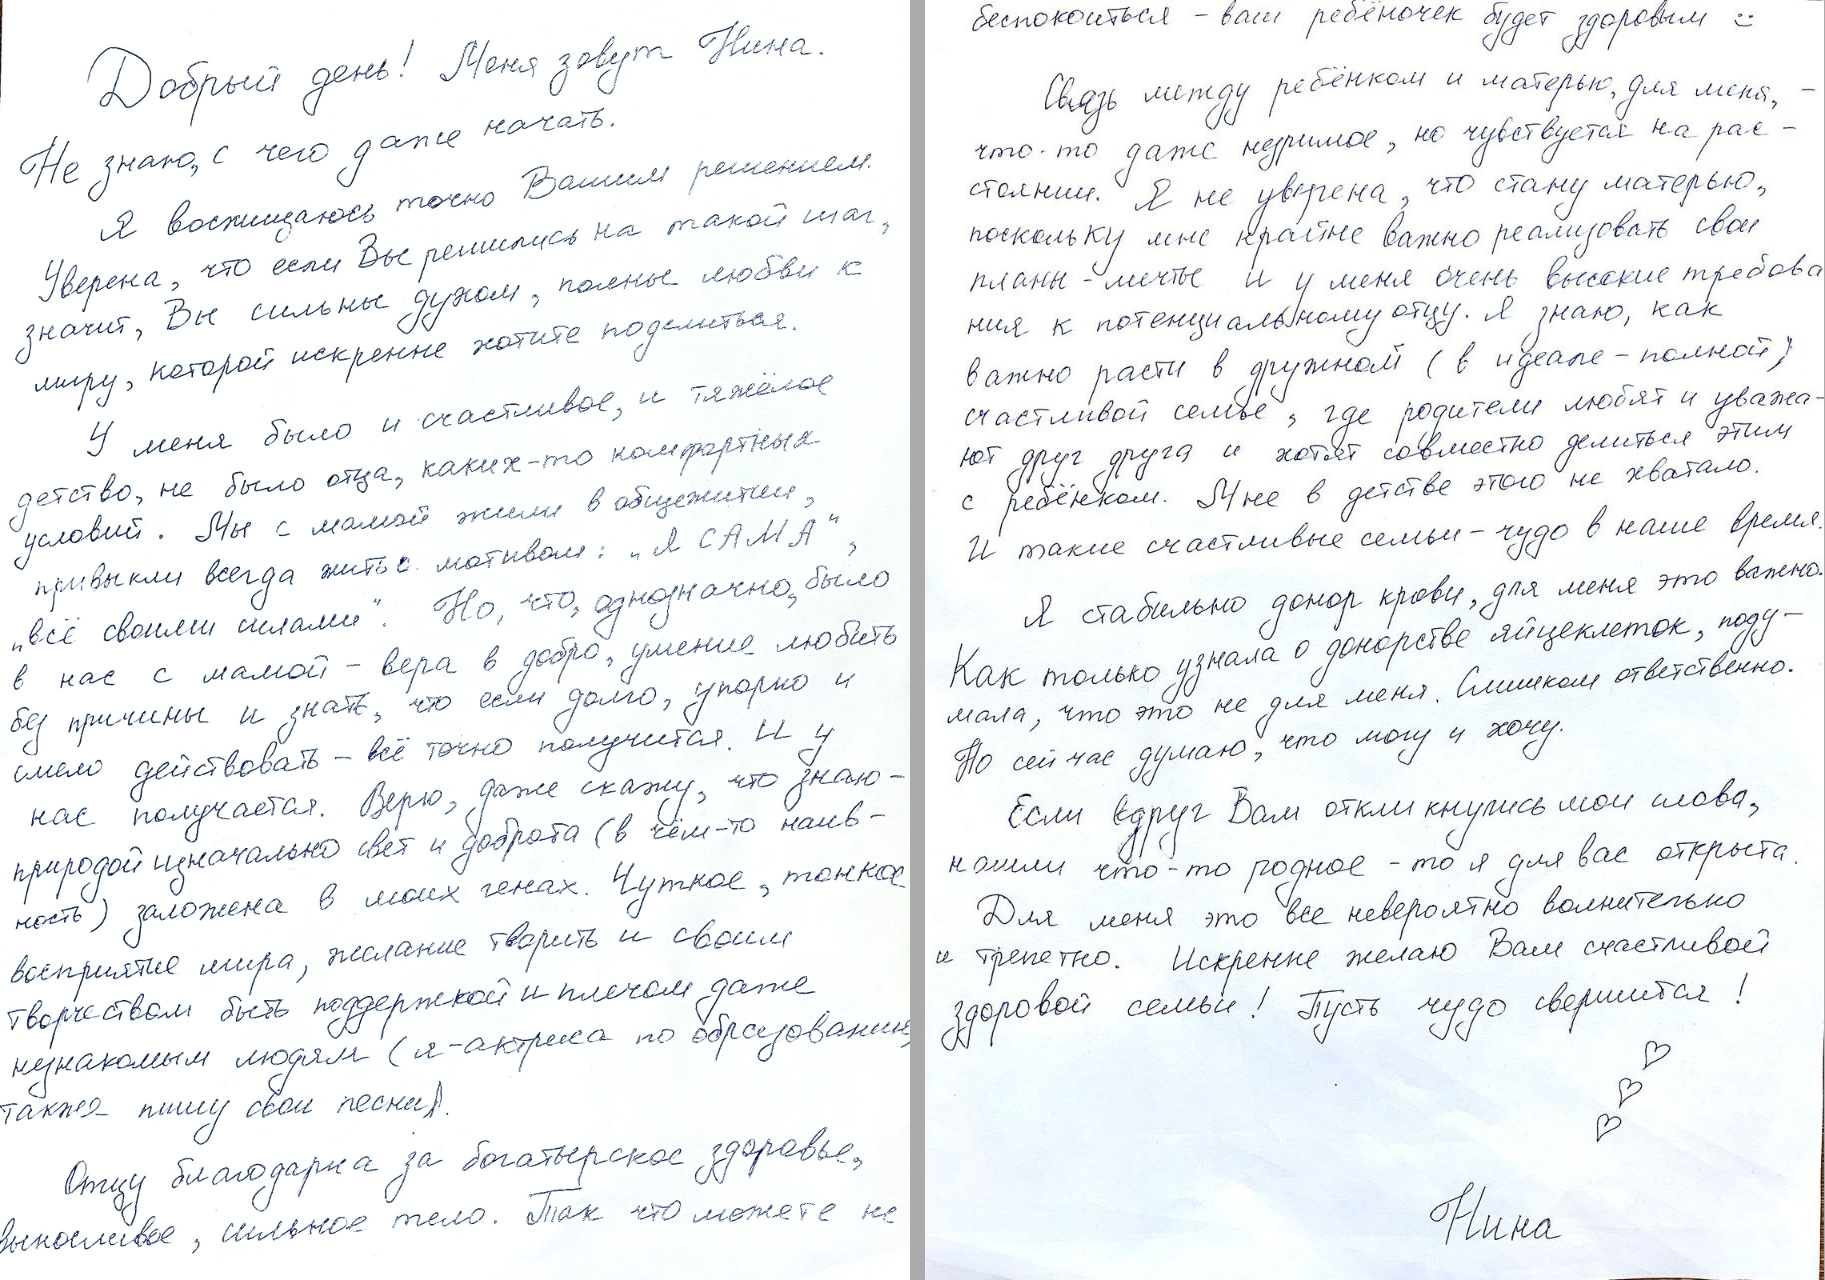 Добрый день! Меня зовут Нина.
Не знаю, с чего даже начать.
Я восхищаюсь точно Вашим решением.
Уверена, что если Вы решились на такой шаг,
значит, Вы сильны духом, полны любви к
миру, которой искренне хотите поделиться.
У меня было и счастливое, и тяжёлое
детство, не было отца, каких-то комфортных
условий. Мы с мамой жили в общежитии,
привыкли всегда жить с мотивом: „Я САМА“,
„всё своими силами“. Но, что, однозначно, было
в нас с мамой – вера в добро, умение любить
без причины и знать, что если долго, упорно и
смело действовать – всё точно получится. И у
нас получается. Верю, даже скажу, что знаю –
природой изначально свет и доброта (в чём-то наив-
ность) заложена в моих генах. Чуткое, тонкое
восприятие мира, желание творить и своим
творчеством быть поддержкой и плечом даже
незнакомым людям (я – актриса по образованию,
также пишу свои песни).
Отцу благодарна за богатырское здоровье,
выносливое, сильное тело. Так что можете не
беспокоиться – ваш ребёночек будет здоровым :)
Связь между ребёнком и матерью, для меня, –
что-то даже незримое, но чувствуется на рас-
стоянии. Я не уверена, что стану матерью,
поскольку мне крайне важно реализовать свои
планы – мечты и у меня очень высокие требова
ния к потенциальному отцу. Я знаю, как
важно расти в дружной (в идеале – полной)
счастливой семье, где родители любят и уважа-
ют друг друга и хотят совместно делиться этим
с ребёнком. Мне в детстве этого не хватало.
И такие счастливые семьи – чудо в наше время.
Я стабильно донор крови, для меня это важно.
Как только узнала о донорстве яйцеклеток, поду-
мала, что это не для меня. Слишком ответственно.
Но сейчас думаю, что могу и хочу.
Если вдруг Вам откликнулись мои слова,
нашли что-то родное – то я для вас открыта.
Для меня это все невероятно волнительно
и трепетно. Искренне желаю Вам счастливой
здоровой семьи! Пусть чудо свершится!
Нина